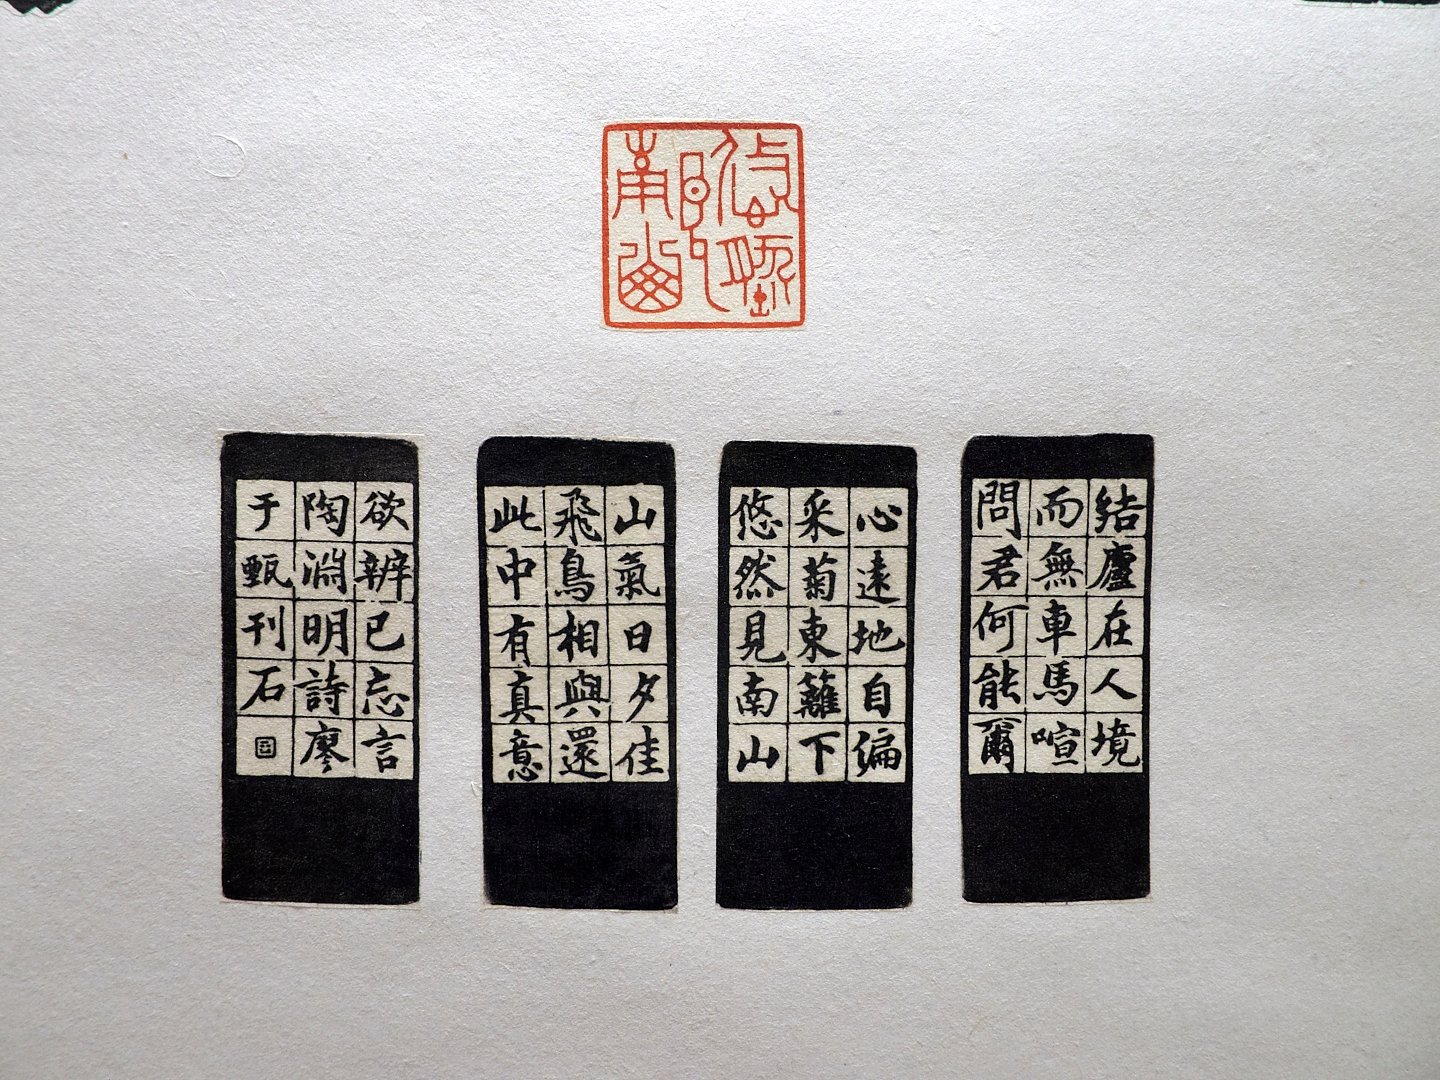 悠然
見
南山
結廬在人境
而無車馬喧
問君何能爾
心遠地自偏
采菊東籬下
悠然見南山
山氣日夕佳
飛鳥相與還
此中有真意
欲辨已忘言
陶淵明詩廖
于甄刊石